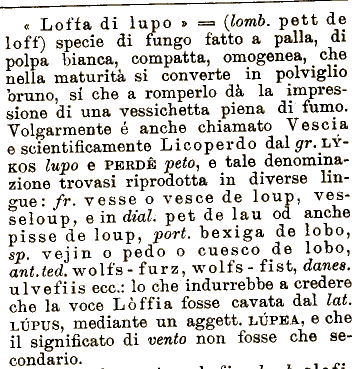 « Loffa di lupo » = (lomb. pett de
loff) specie di fungo fatto a palla, di
polpa bianca, compatta, omogenea, che
nella maturità si converte in polviglio
bruno, sì che a romperlo dà la impres-
sione di una vessichetta piena di fumo.
Volgarmente é anche chiamato Vescia
e scientificamente Licoperdo dal gr. LÝ-
KOS lupo e PERDÊ peto, e tale denomina-
zione trovasi riprodotta in diverse lin-
gue: fr. vesse o vesce de loup, ves-
seloup, e in dial. pet de lau od anche
pisse de loup, port. bexiga de lobo,
sp. vejin o pedo o cuesco de lobo,
ant.ted. wolfs-furz, wolfs-fist, danes.
ulvefiis ecc.: lo che indurrebbe a credere
che la voce Lòffia fosse cavata dal lat.
LÚPUS, mediante un aggett. LÚPEA, e che
il significato di vento non fosse che se-
condario.